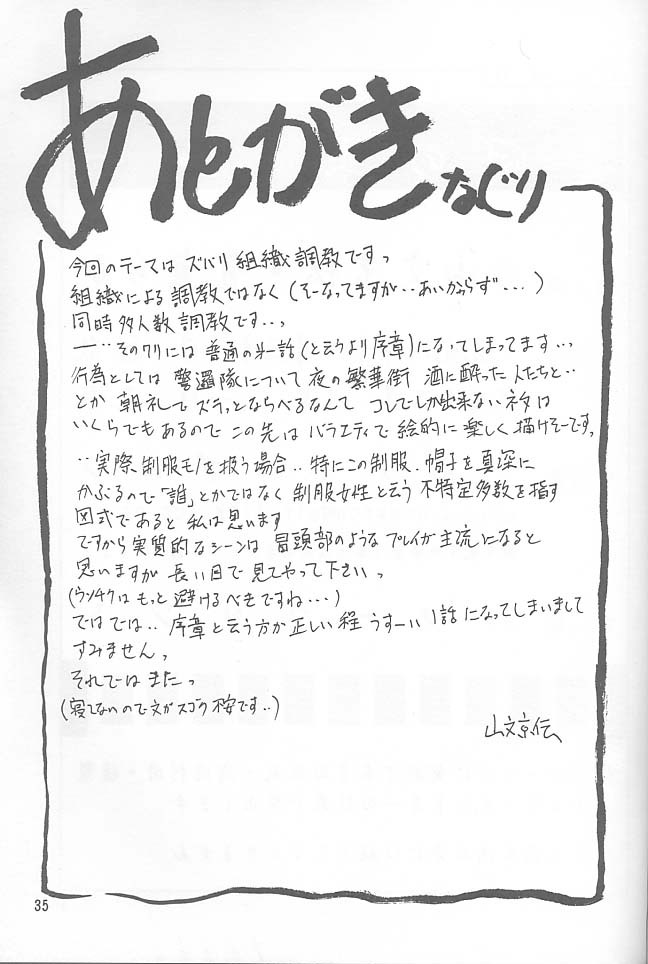 あとがき なぐり
今回のテーマは ズバリ 組織調教ですっ
組織による 調教ではなく (そーなってますが‥あいかわらず…)
同時多人数調教です‥っ
一‥そのワリには 普通の第一話(と云うより序章)になってしまってます‥、
行為としては 警邏隊について 夜の繁華街 酒に酔った人たちと‥
とか 朝礼で ズラッとならべるなんて コレでしか出来ないネタは
いくらでもあるので この先は バラエティで 絵的に 楽しく描けそーです。
‥実際、制服モノを扱う場合‥特にこの制服、帽子を真深に
かぶるので「誰」とかではなく 制服女性と云う 不特定多数を指す
図式であると 私は思います
ですから 実質的なシーンは 冒頭部のような プレイが主流になると
思いますが 長い目で見てやって下さいっ
(ウンチクは もっと避けるべきですね…)
ではでは‥ 序章と云う方が正しい程 うすーい 1話になってしまいまして
すみません、
それでは またっ
(寝てないので文がスゴク不安です‥)
山文京伝
35